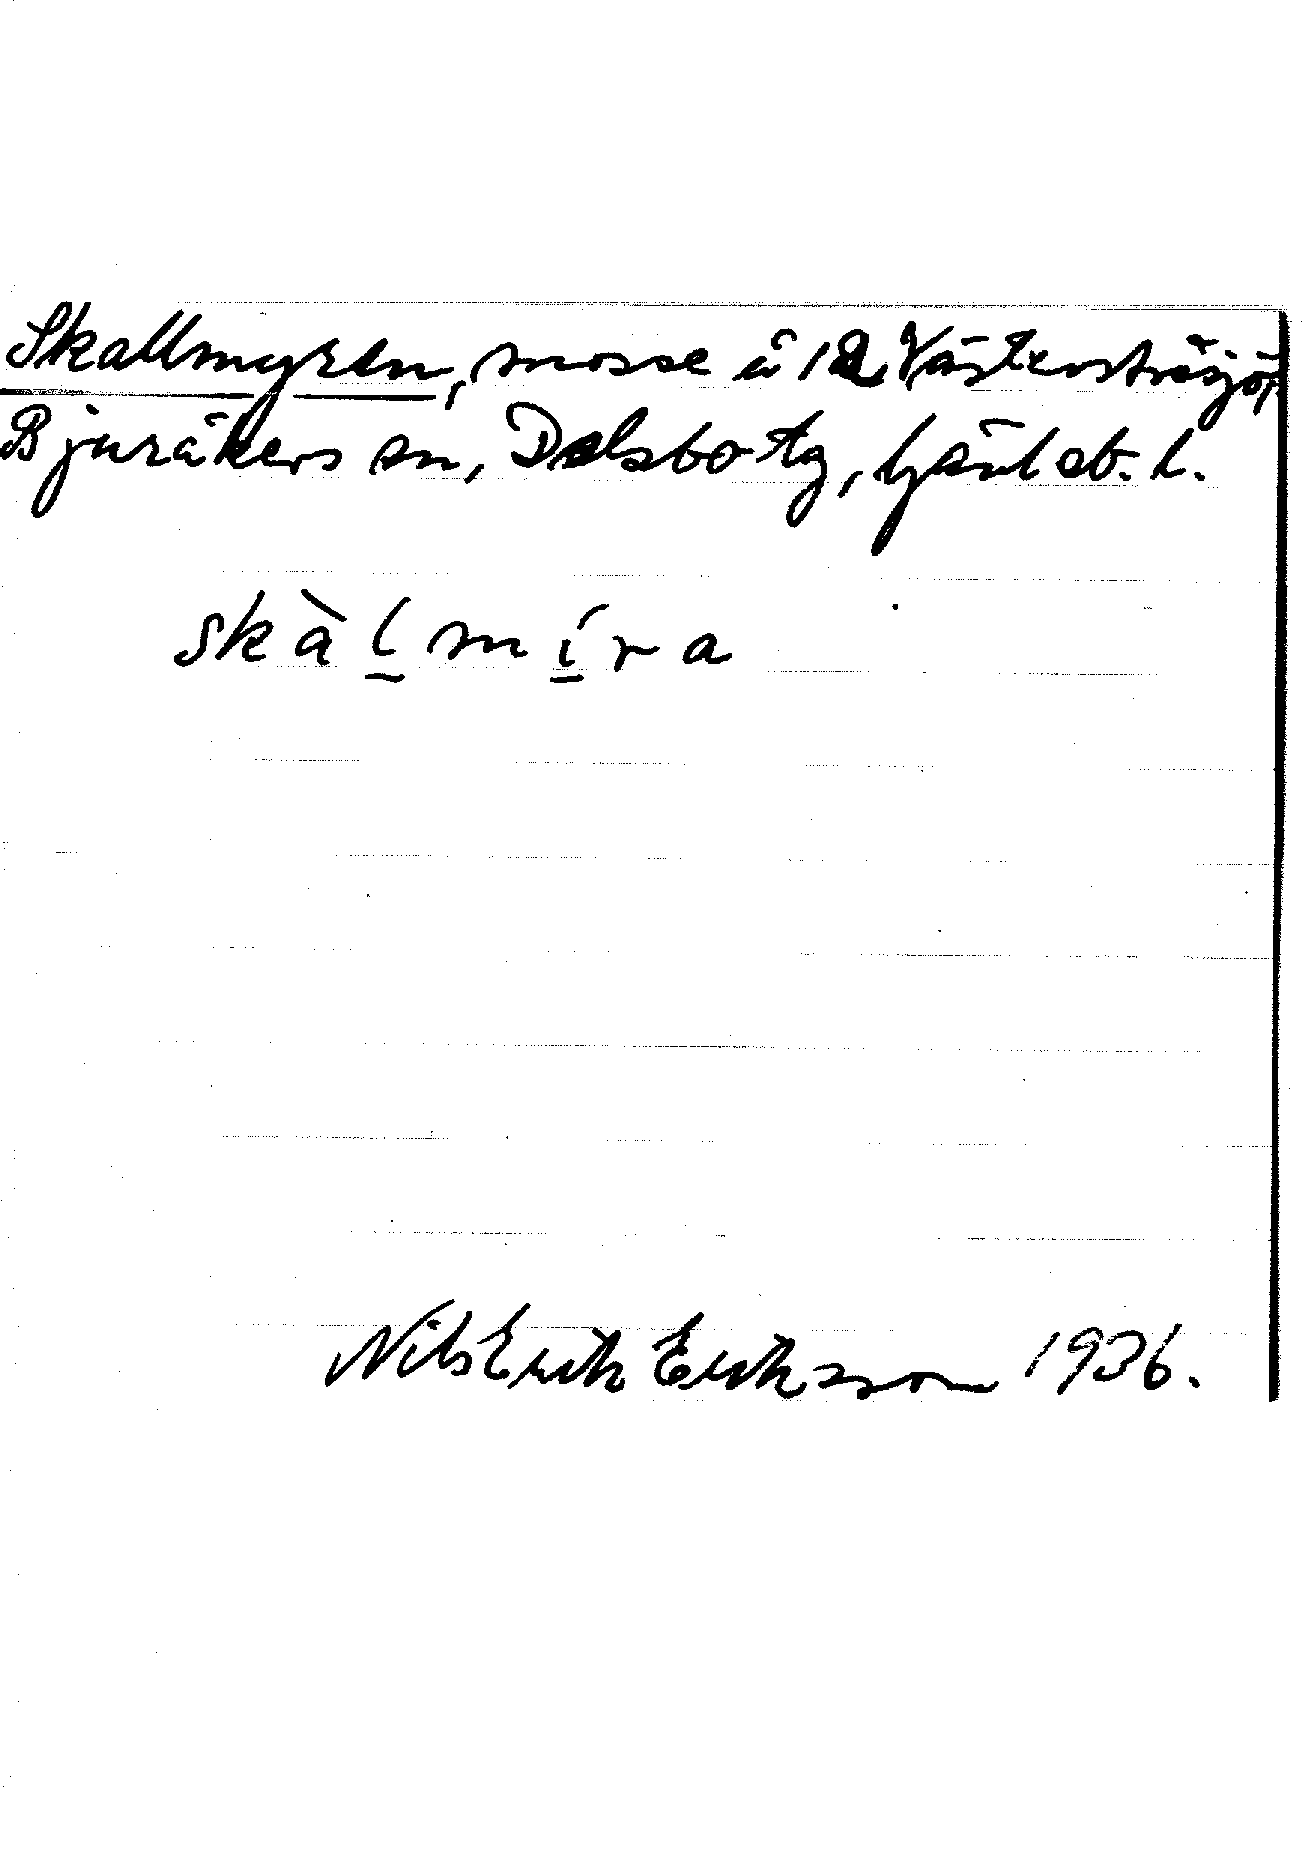 Skallmyren, mosse å 12 Västersträsjö,
Bjuråkers sn, Delsbo tg, Gävleb. l.
skàlmíra
Nils Erik Eriksson 1936.